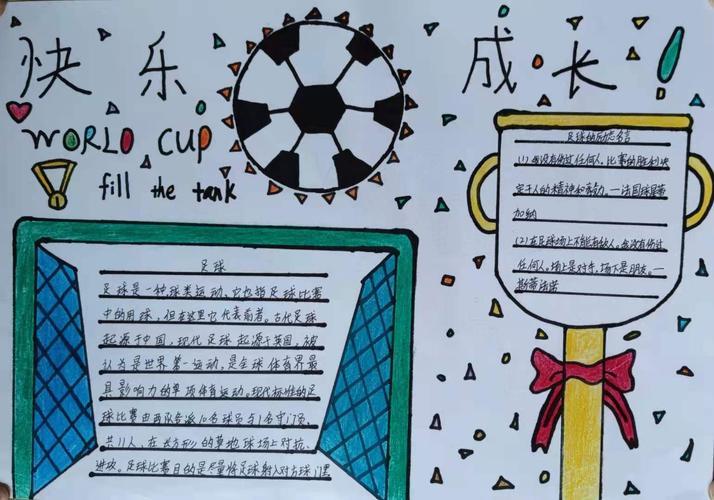 快乐
成长!
WORLD CUP
fill the tank
足球
足球是一种球类运动,它也指足球比赛
中的用球,但在这里它代表前者。古代足球
起源于中国,现代足球起源于英国,被
认为是世界第一运动,是全球体育界最
具影响力的单项体育运动。现代标准的足
球比赛由两队各派10名球员与1名守门员,
共11人,在长方形的草地球场上对抗、
进攻。足球比赛目的是尽量将足球射入对方球门里
足球的励志名言
(1)我没有伤过任何人,比赛的胜利决
定于人的精神和努力。一法国球星
加纳
(2)在足球场上不能有敌人,我没有伤过
任何人,场上是对手,场下是朋友。一
斯蒂法诺